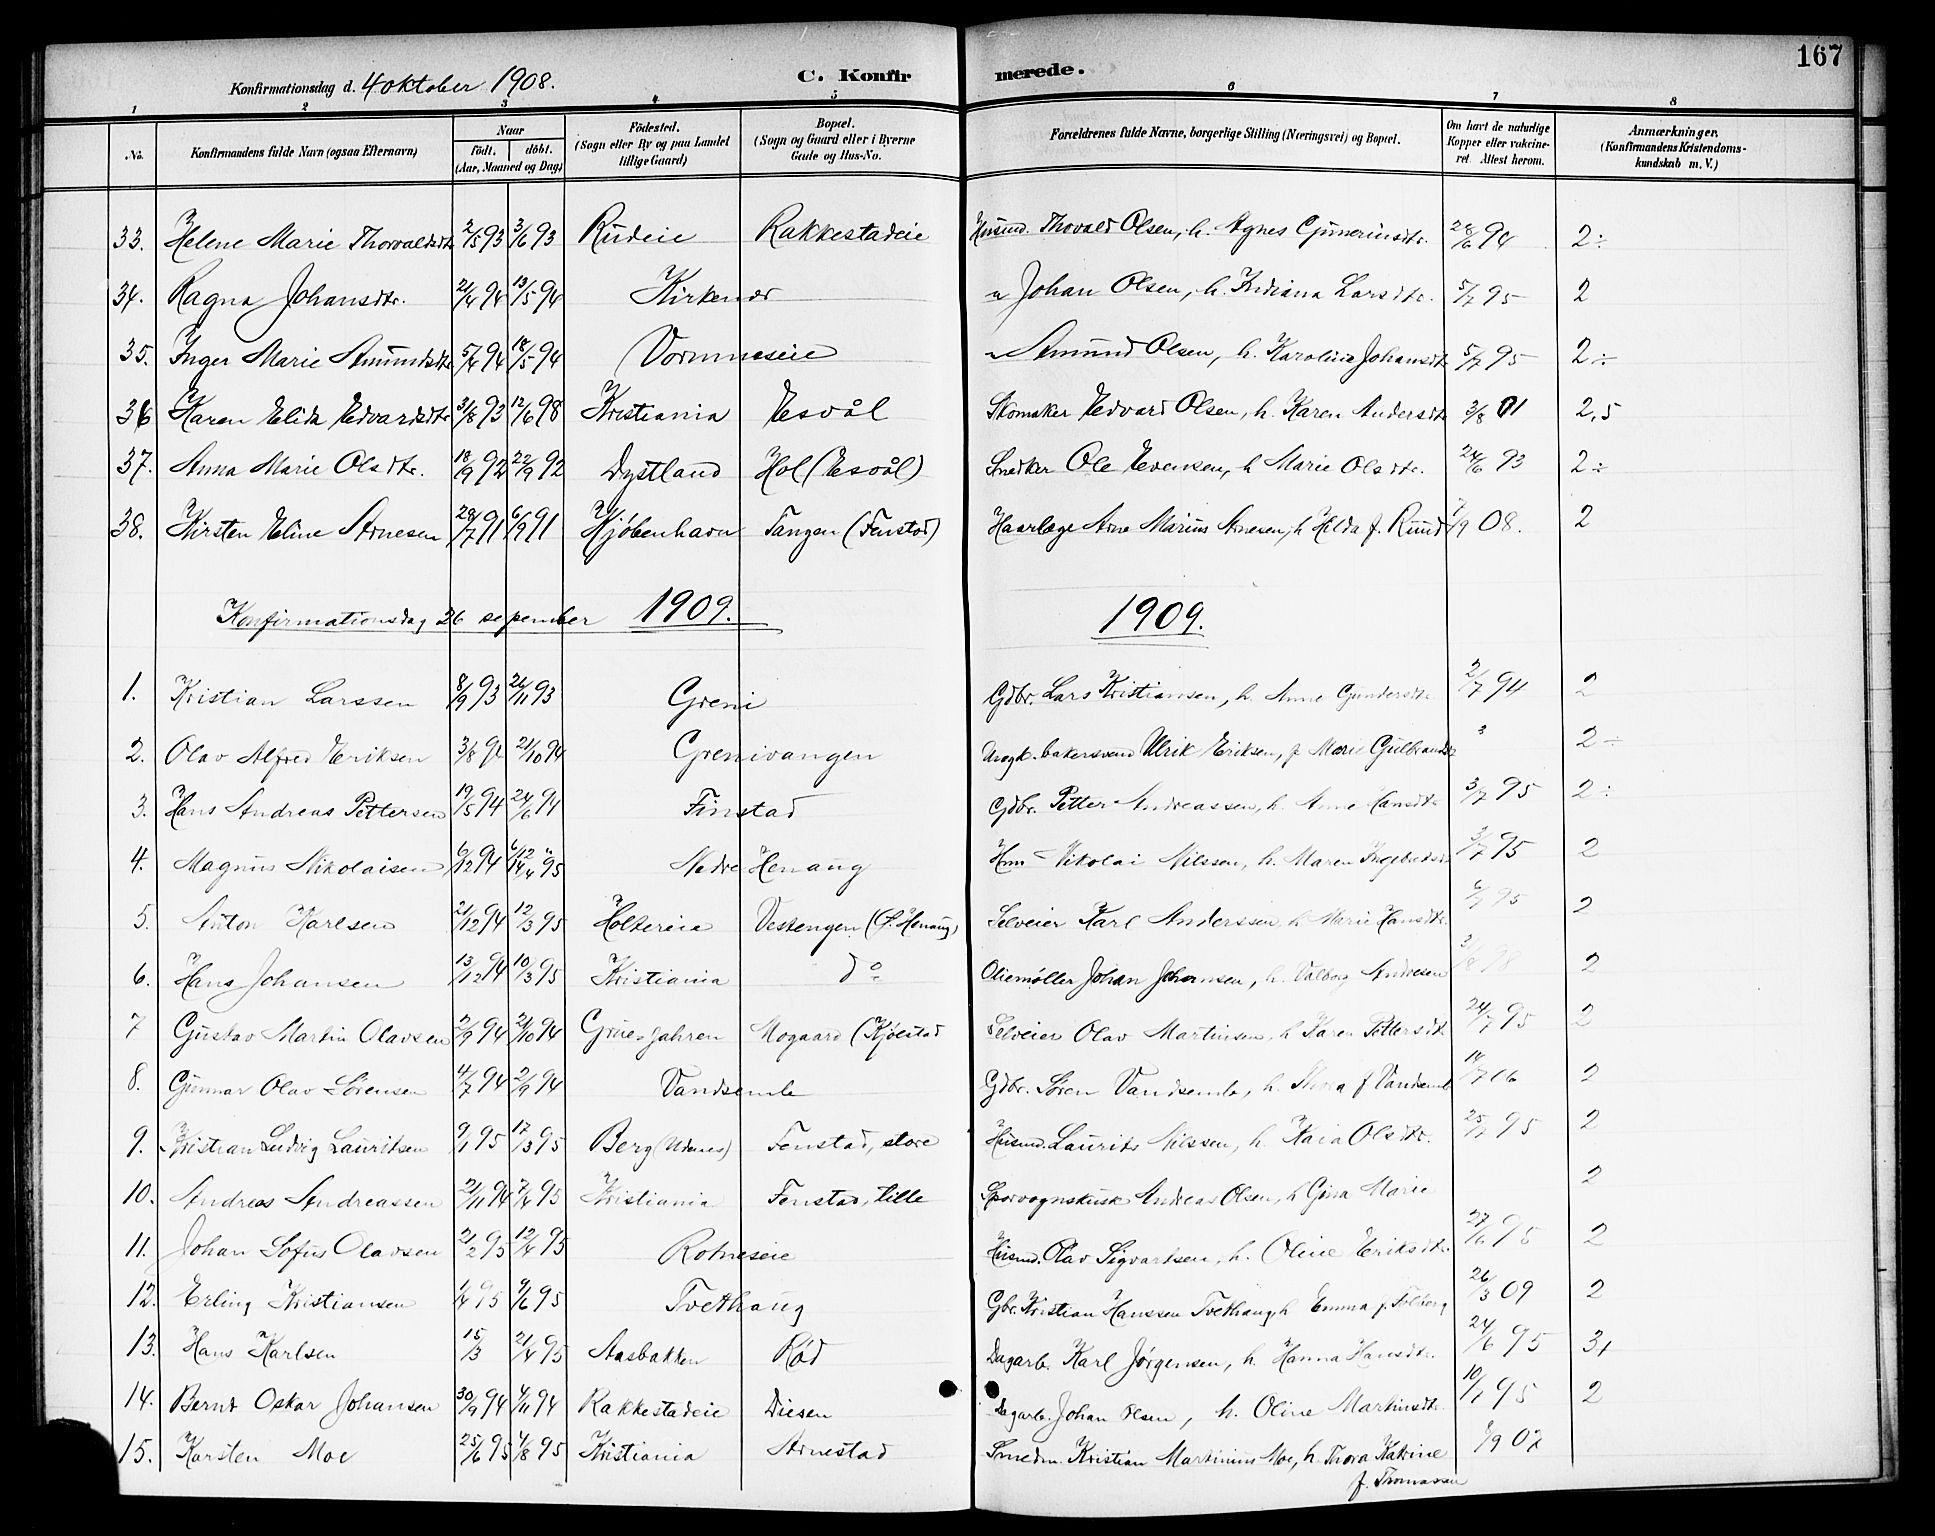 167
Konfirmationsdag d. 4 oktober 1908. C. Konfirmerede.
1 2 3 4 5 6 7 8
No. Konfirmandens fulde Navn (ogsaa Efternavn) Naar födt. döbt. (Aar, Maaned og Dag) Födested. (Sogn eller By og paa Landet tillige Gaard) Bopæl. (Sogn og Gaard eller i Byerne Gade og Hus-No. Forældrenes fulde Navne, borgerlige Stilling (Næringsvei) og Bopæl. Om havt de naturlige Kopper eller vakcineret. Attest herom. Anmærkninger. (Konfirmandens Kristendomskundskab m. V.)
33. Helene Marie Thorvaldsdtr 2/5 93 3/6 93 Rudeie Rakkestadeie Husmd. Thovald Olsen, h. Agnes Guneriusdtr. 28/6 94 2÷
34. Ragna Johansdtr. 21/4 94 13/5 94 Kirkenær " Johan Olsen, h. Indiana Larsdtr. 5/7 95 2
35. Inger Marie Amundsdtr 5/4 94 18/5 94 Vormneseie " Amund Olsen, h. Karolina Johansdtr 5/7 95 2÷
36 Karen Elida Edvardsdtr 31/8 93 12/6 98 Kristiania Esvål Skomaker Edvard Olsen, h. Karen Andersdtr 3/8 01 2,5
37. Anna Marie Olsdtr. 18/9 92 22/9 92 Dystland Hol (Esvål) Snedker Ole Evensen, h Marie Olsdtr. 24/6 93 2÷
38. Kirsten Eline Arnesen 28/7 91 6/9 91 Kjöbenhavn Tangen (Fenstad) Haarlæge Arne Marius Arnesen, h Hilda f. Ruud 7/9 08. 2
Konfirmationsdag 26 sepember 1909. 1909.
1. Kristian Larssen 8/9 93 26/11 93 Greni Gdbr. Lars Kristiansen, h. Anne Gundersdtr 2/7 94 2
2. Olav Alfred Eriksen 3/8 94 21/10 94 Grenivangen Uægt. bakersvend Ulrik Eriksen, p Marie Gulbrandsdtr 2÷
3. Hans Andreas Pettersen 19/5 94 24/6 94 Finstad Gdbr. Petter Andreassen, h. Anne Hansdtr 3/7 95 2÷
4. Magnus Nikolaisen 6/12 94 Nedre Henaug Hm Nikolai Nilssen, h. Maren Ingebretsdtr 3/7 95 2
5. Anton Karlsen 21/12 94 12/3 95 Holtereie Vestengen (S. Henaug) Selveier Karl Anderssen h Marie Hansdtr. 6/7 95 2
6. Hans Johansen 13/12 94 10/3 95 Kristiania do Oliemøller Johan Johansen, h. Valborg Andresen 2
7 Gustav Martin Olavsen 2/9 94 21/10 94 Grue-Jahren Mogaard (Kjölstad Selveier Olav Martinsen, h Karen Pettersdtr 24/7 95 2
8. Gunnar Olav Sörensen 4/7 94 2/9 94 Vandsemb Gdbr. Søren Vandsemb, h. Thora f Vandsemb 14/7 06 2
9. Kristian Ludvig Lauritsen 9/1 95 17/3 95 Berg (Udenes) Fenstad, store Husmd. Laurits Nilssen, h. Kaia Olsdtr. 25/7 95 2
10. Andreas Andreassen 21/11 94 7/4 95 Kristiania Fenstad, lille Sporvognskusk Andreas Olsen, h Gina Marie 2
11. Johan Sofus Olavsen 21/2 95 12/4 95 Rotneseie Husmd. Olav Sigvartsen, h. Oline Eriksdtr. 27/6 95 2
12. Erling Kristiansen 1/4 95 9/6 95 Tvethaug Gbr. Kristian Hanssen Tvethaug h Emma f. Solberg 26/3 09 2
13. Hans Karlsen 15/3 21/4 95 Aasbakken Rød Dagarb. Karl Jørgensen, h. Hanna Hansdtr. 24/6 95 3+
14. Bernt Oskar Johansen 30/9 94 4/11 94 Rakkestadeie Diesen Dagarb. Johan Olsen, h. Oline Martinsdtr. 10/7 95 2
15. Karsten Moe 25/6 95 4/8 95 Kristiania Arnestad Smedm. Kristian Martinius Moe, h. Thora Katrine 6/9 07
f. Thomassen